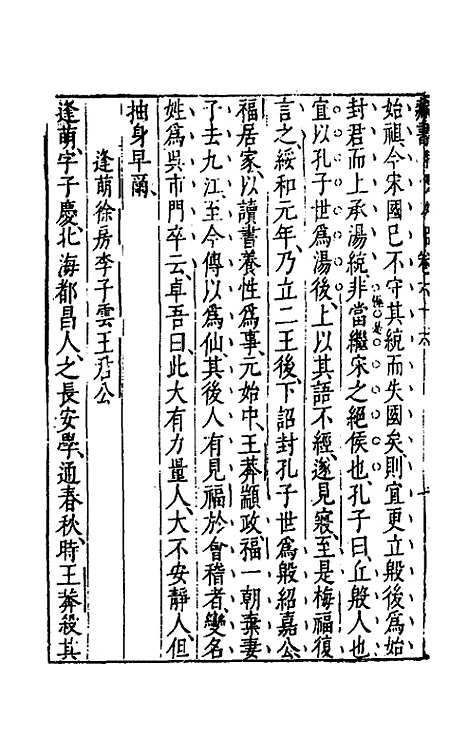 藏書 卷六十六
始祖今宋國已不守其統而失國矣則宜更立殷後爲始
封君而上承湯統非當繼宋之絕侯也孔子曰丘殷人也
宜以孔子世爲湯後上以其語不經遂見寢至是梅福復
言之綏和元年乃立二王後下詔封孔子世爲殷紹嘉公
福居家以讀書養性爲事元始中王莽顓政福一朝棄妻
子去九江至今傳以爲仙其後人有見福於會稽者變名
姓爲吳市門卒云卓吾曰此大有力量人大不安靜人但
抽身早爾
逢萌徐房李子雲王君公
逢萌字子慶北海都昌人之長安學通春秋時王莽殺其